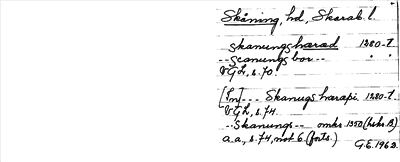 Skåning, hd, Skarab. l.
skanungs hærad 1280-t.
-- scanungs bor -- " "
VGL, s. 70.
[Im] --- Skanugs hærapi 1280-t.
VGL, s. 74.
-- Skanungs -- omkr. 1350 (hskr. B)
a.a., s. 74, not 6 (forts.)
G.E. 1962.